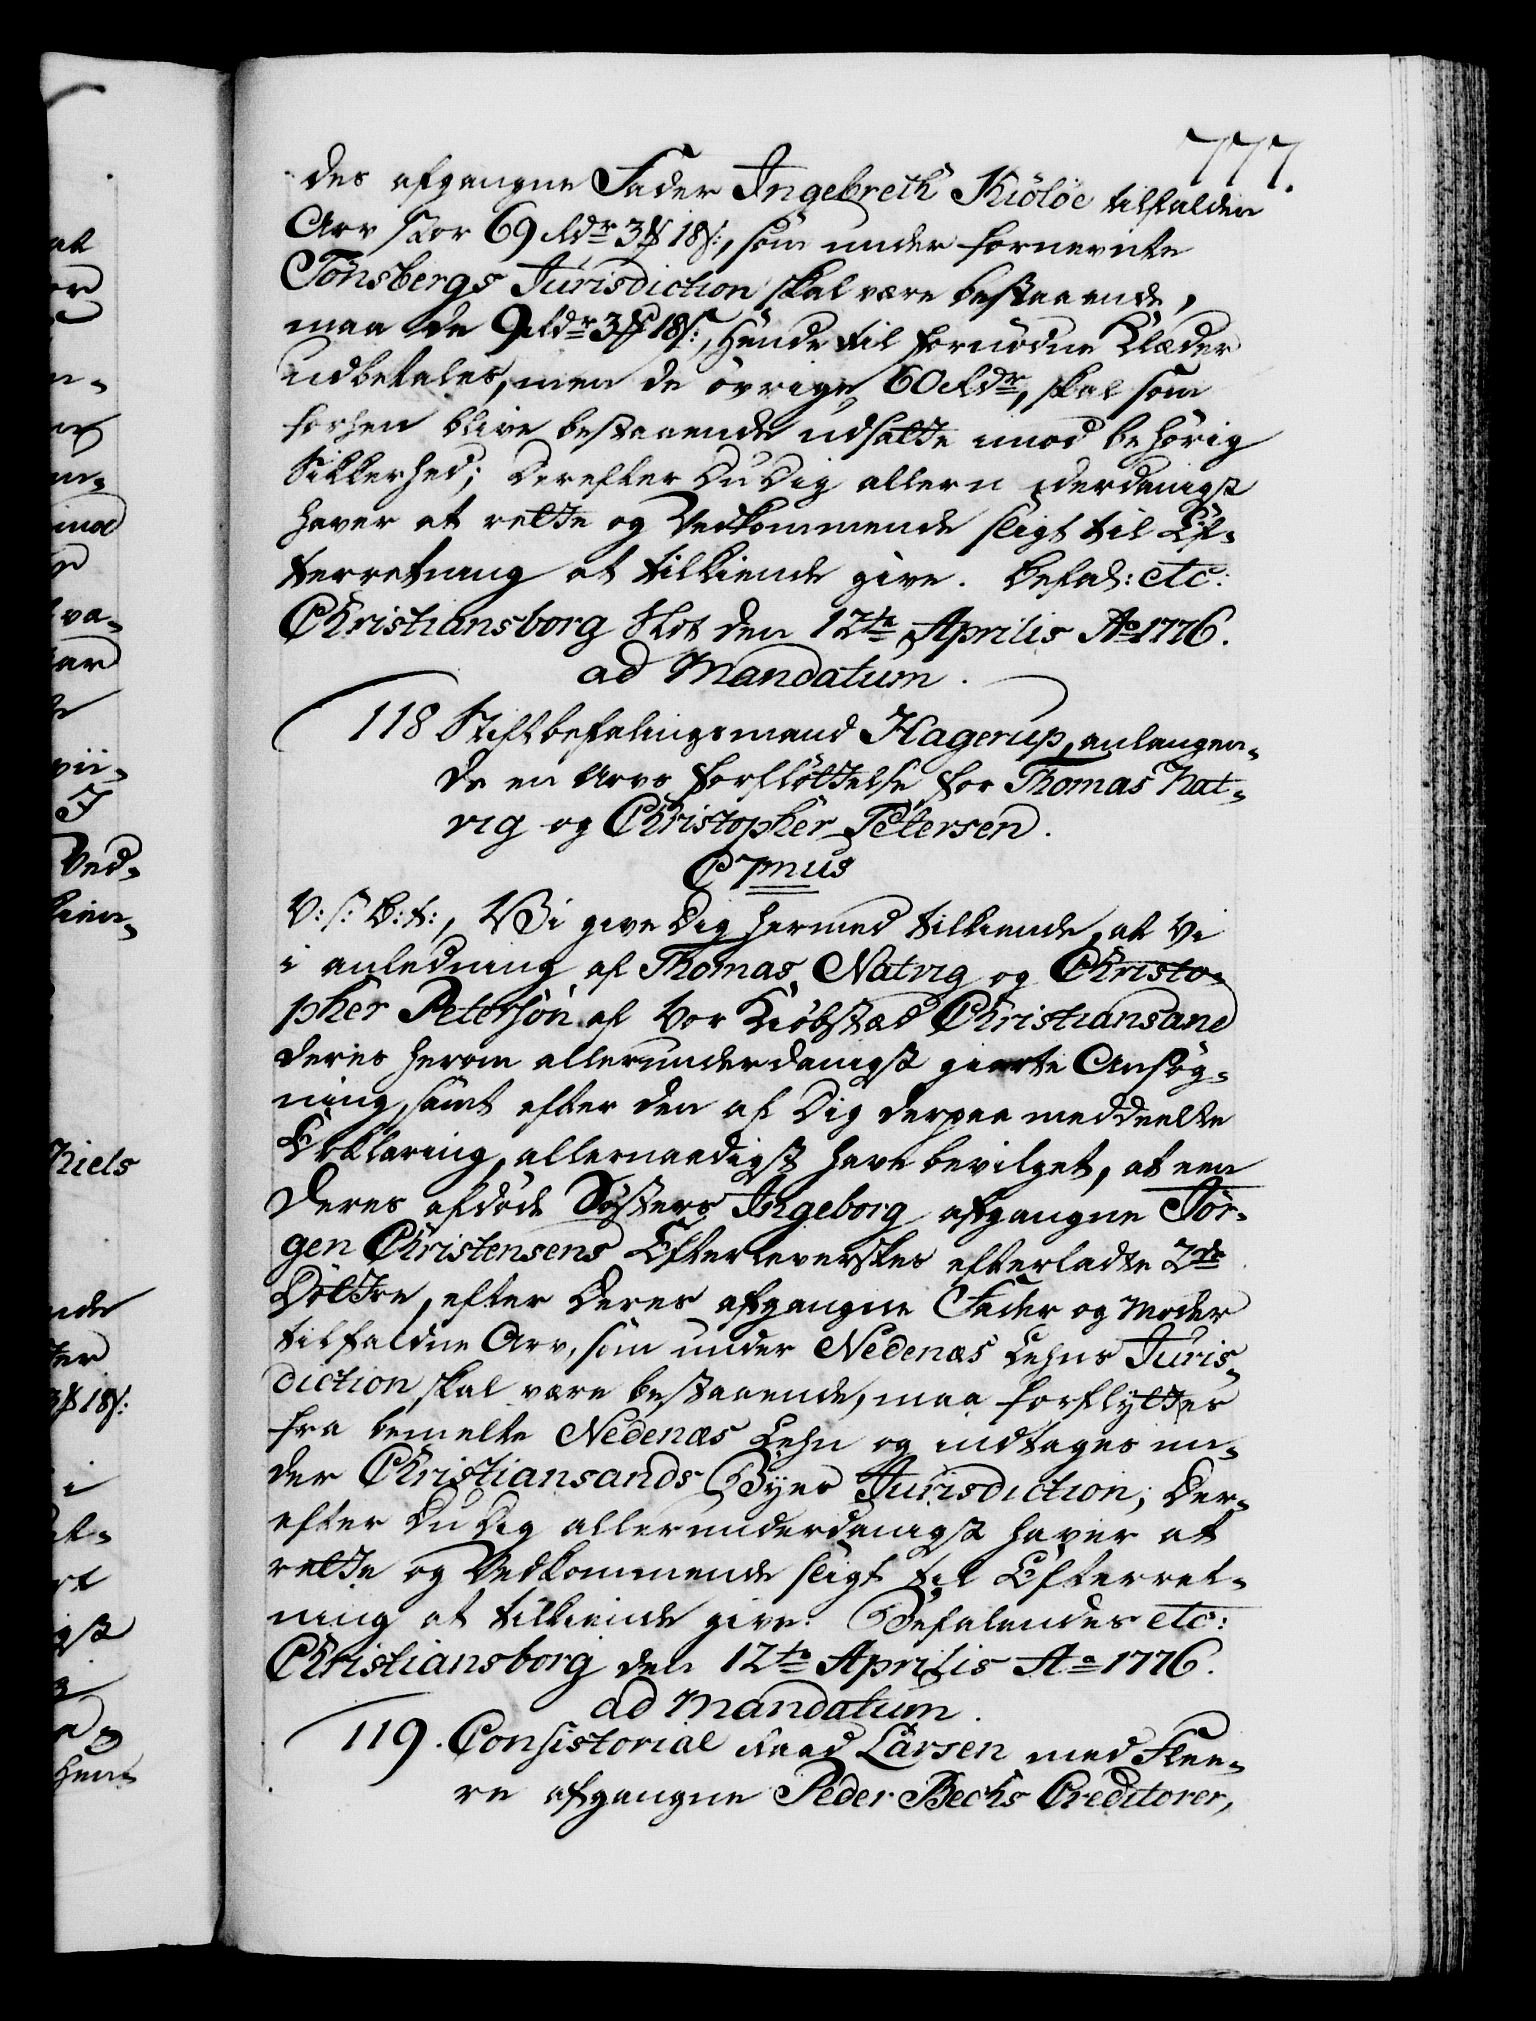 777.
des afgangne Fader Ingebreth Kiölöe tilfalden
Arv stor 69 Rdr 3 ß 18 s:, som under fornevnte
Tönsbergs Jurisdiction skal være bestaaende,
maa de 9 Rdr 3 ß 18 s:, hende til fornødne Klæder
udbetales, men de övrige 60 Rdr, skal som
forhen blive bestaaende udsatte imod behörig
Sikkerhed; Derefter Du Dig allerunderdanigst
haver at rette og Vedkommende sligt til Ef-
terretning at tilkiende give. Befal: etc:
Christiansborg Slot den 12te Aprilis Ao 1776.
ad Mandatum.
118 Stiftbefalingsmand Hagerup, anlangen-
de en Arvs forflöttelse for Thomas Nat-
vig og Christopher Petersen.
C 7mus
V: s: B: t:, Wi give Dig hermed tilkiende, at Vi
i anledning af Thomas Natvig og Christo-
pher Petersön af Vor Kiöbstæd Christiansand
deres herom allerunderdanigst giorte Ansög-
ning, samt efter den af Dig derpaa meddeelte
Erklæring, allernaadigst have bevilget, at een
Deres afdöde Sösters Ingeborg afgangne Jör-
gen Christensens Efterleverskes efterladte 2de
Döttre, efter Deres afgangne Fader og Moder
tilfaldne Arv, som under Nedenæs Lehns Juris-
diction skal være bestaaende, maa forflyttes
fra bemelte Nedenæs Lehn og indtages un-
der Christiansands Byes Jurisdiction; Der-
efter Du Dig allerunderdanigst haver at
rette og Vedkommende sligt til Efterret-
ning at tilkiende give. Befalendes etc:
Christiansborg den 12te Aprilis Ao 1776.
ad Mandatum.
119. Consistorial Raad Larsen med Flee-
re afgangne Peder Bechs Creditorer,